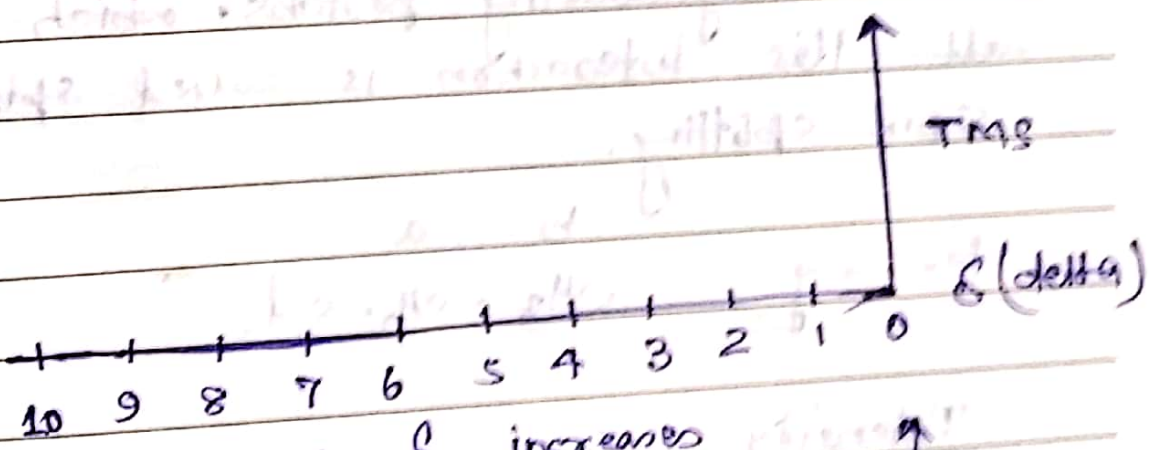 TMS
δ (delta)
10 9 8 7 6 5 4 3 2 1 0
increases